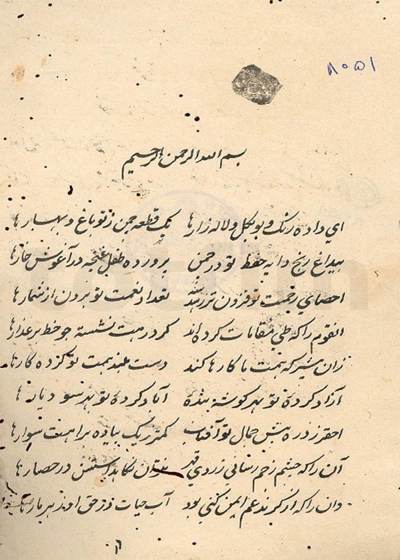 ۸۰۵۱
بسم الله الرحمن الرحیم
ای داده رنگ و بو گل و لاله زارها یک قطعه چمن ز تو باغ و بهارها
بیداغ رنج دایه حفظ تو در چمن پرورده طفل غنچه در آغوش خارها
احصای رحمت تو فزون تر ز حد تعداد نعمت تو برون از شمارها
انقوم را که طی مقامات کرده اند کمر درهت نشسته چو خط بر عذارها
زان سیر که همت ما کارها کند دست بلند همت تو کرده کارها
آزاد کرده تو بهر گوشه بنده آباد کرده تو بهر سو دیارها
احقر ز ذره پیش جمال تو آفتاب کمتر ز یک پیاده براهت سوارها
آن را که چشم زخم رسانی ز روی قهر نتوان نگاه داشتنش در حصارها
وان را که از گزند غم ایمن کنی بود آب حیات در حق او زهر مارها